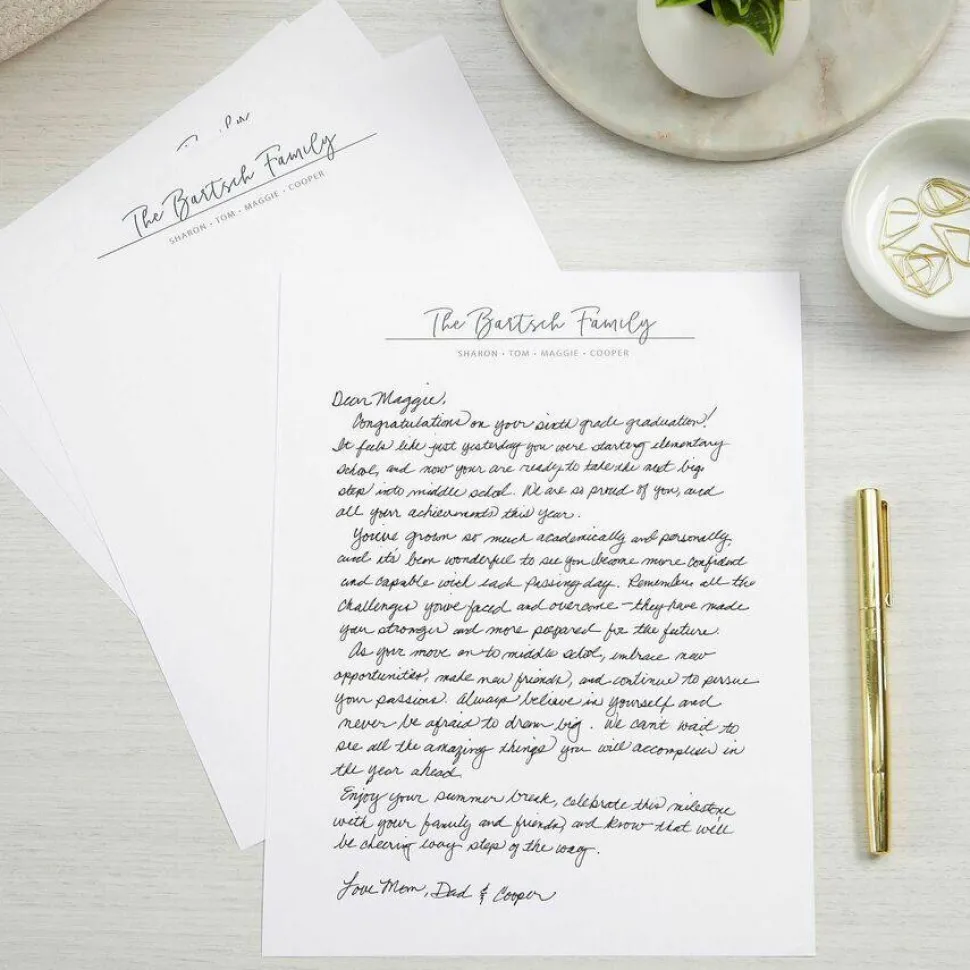 The Bartsch Family
SHARON • TOM • MAGGIE • COOPER
The Bartsch Family
SHARON • TOM • MAGGIE • COOPER
Dear Maggie,
Congratulations on your sixth grade graduation!
It feels like just yesterday you were starting elementary
school, and now your are ready to take the next big
step into middle school. We are so proud of you, and
all your achievements this year.
You've grown so much academically and personally,
and it's been wonderful to see you become more confident
and capable with each passing day. Remember all the
challenges you've faced and overcome – they have made
you stronger and more prepared for the future.
As your move on to middle school, embrace new
opportunities, make new friends, and continue to persue
your passions. Always believe in yourself and
never be afraid to dream big. We can't wait to
see all the amazing things you will accomplish in
the year ahead.
Enjoy your summer break, celebrate this milestone
with your family and friends, and know that we'll
be cheering every step of the way.
Love Mom, Dad & Cooper